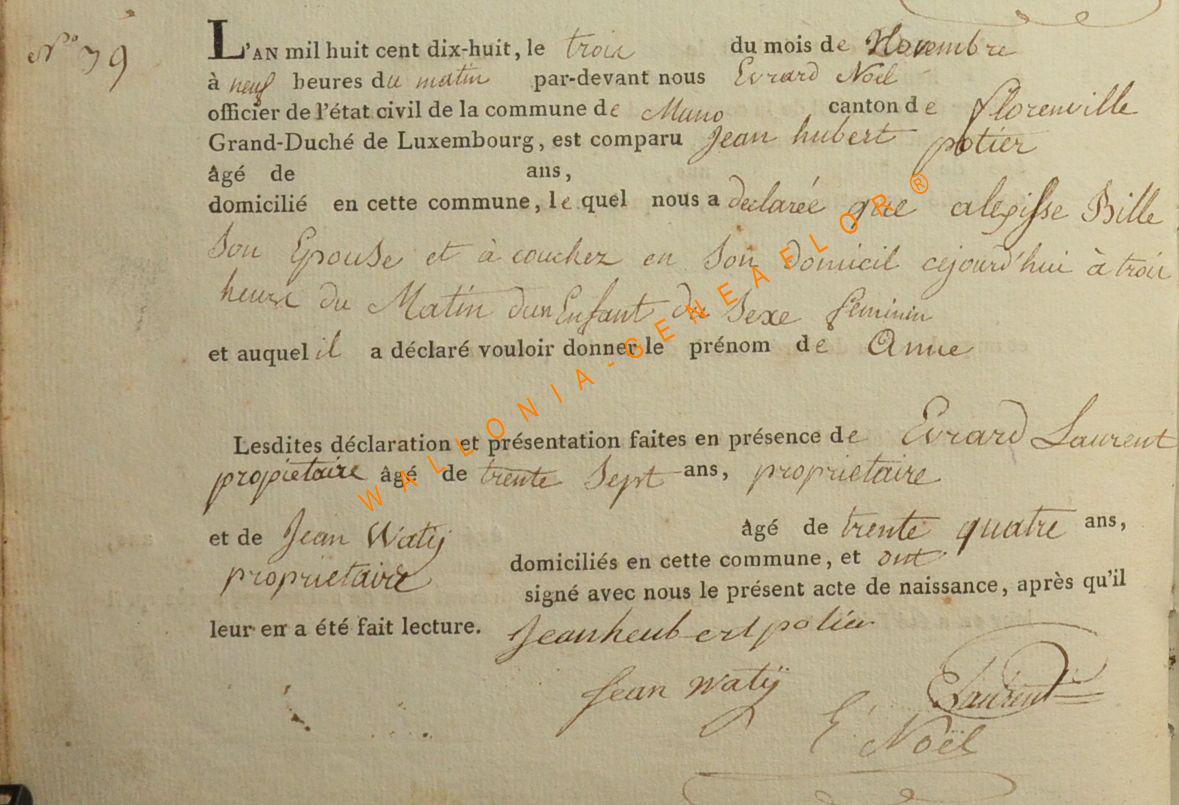 N° 79
L'AN mil huit cent dix-huit, le trois du mois de Novembre
à neuf heures du matin par-devant nous Evrard Noël
officier de l'état civil de la commune de Muno canton de florenville
Grand-Duché de Luxembourg, est comparu Jean hubert potier
âgé de ans,
domicilié en cette commune, le quel nous a declarée que alegisse Bille
Son Epouse et à couchez en Son domicil cejourd'hui à trois
heure du Matin dun Enfant du Sexe feminin
et auquel il a déclaré vouloir donner le prénom de Anne
Lesdites déclaration et présentation faites en présence de Evrard Laurent
propietaire âgé de trente Sept ans, proprietaire
et de Jean Watÿ âgé de trente quatre ans,
proprietaire domiciliés en cette commune, et ont
signé avec nous le présent acte de naissance, après qu'il
leur en a été fait lecture. Jeanheubert potier
Jean watÿ Laurent
E Noël
WALLONIA-GENEAFLOR®